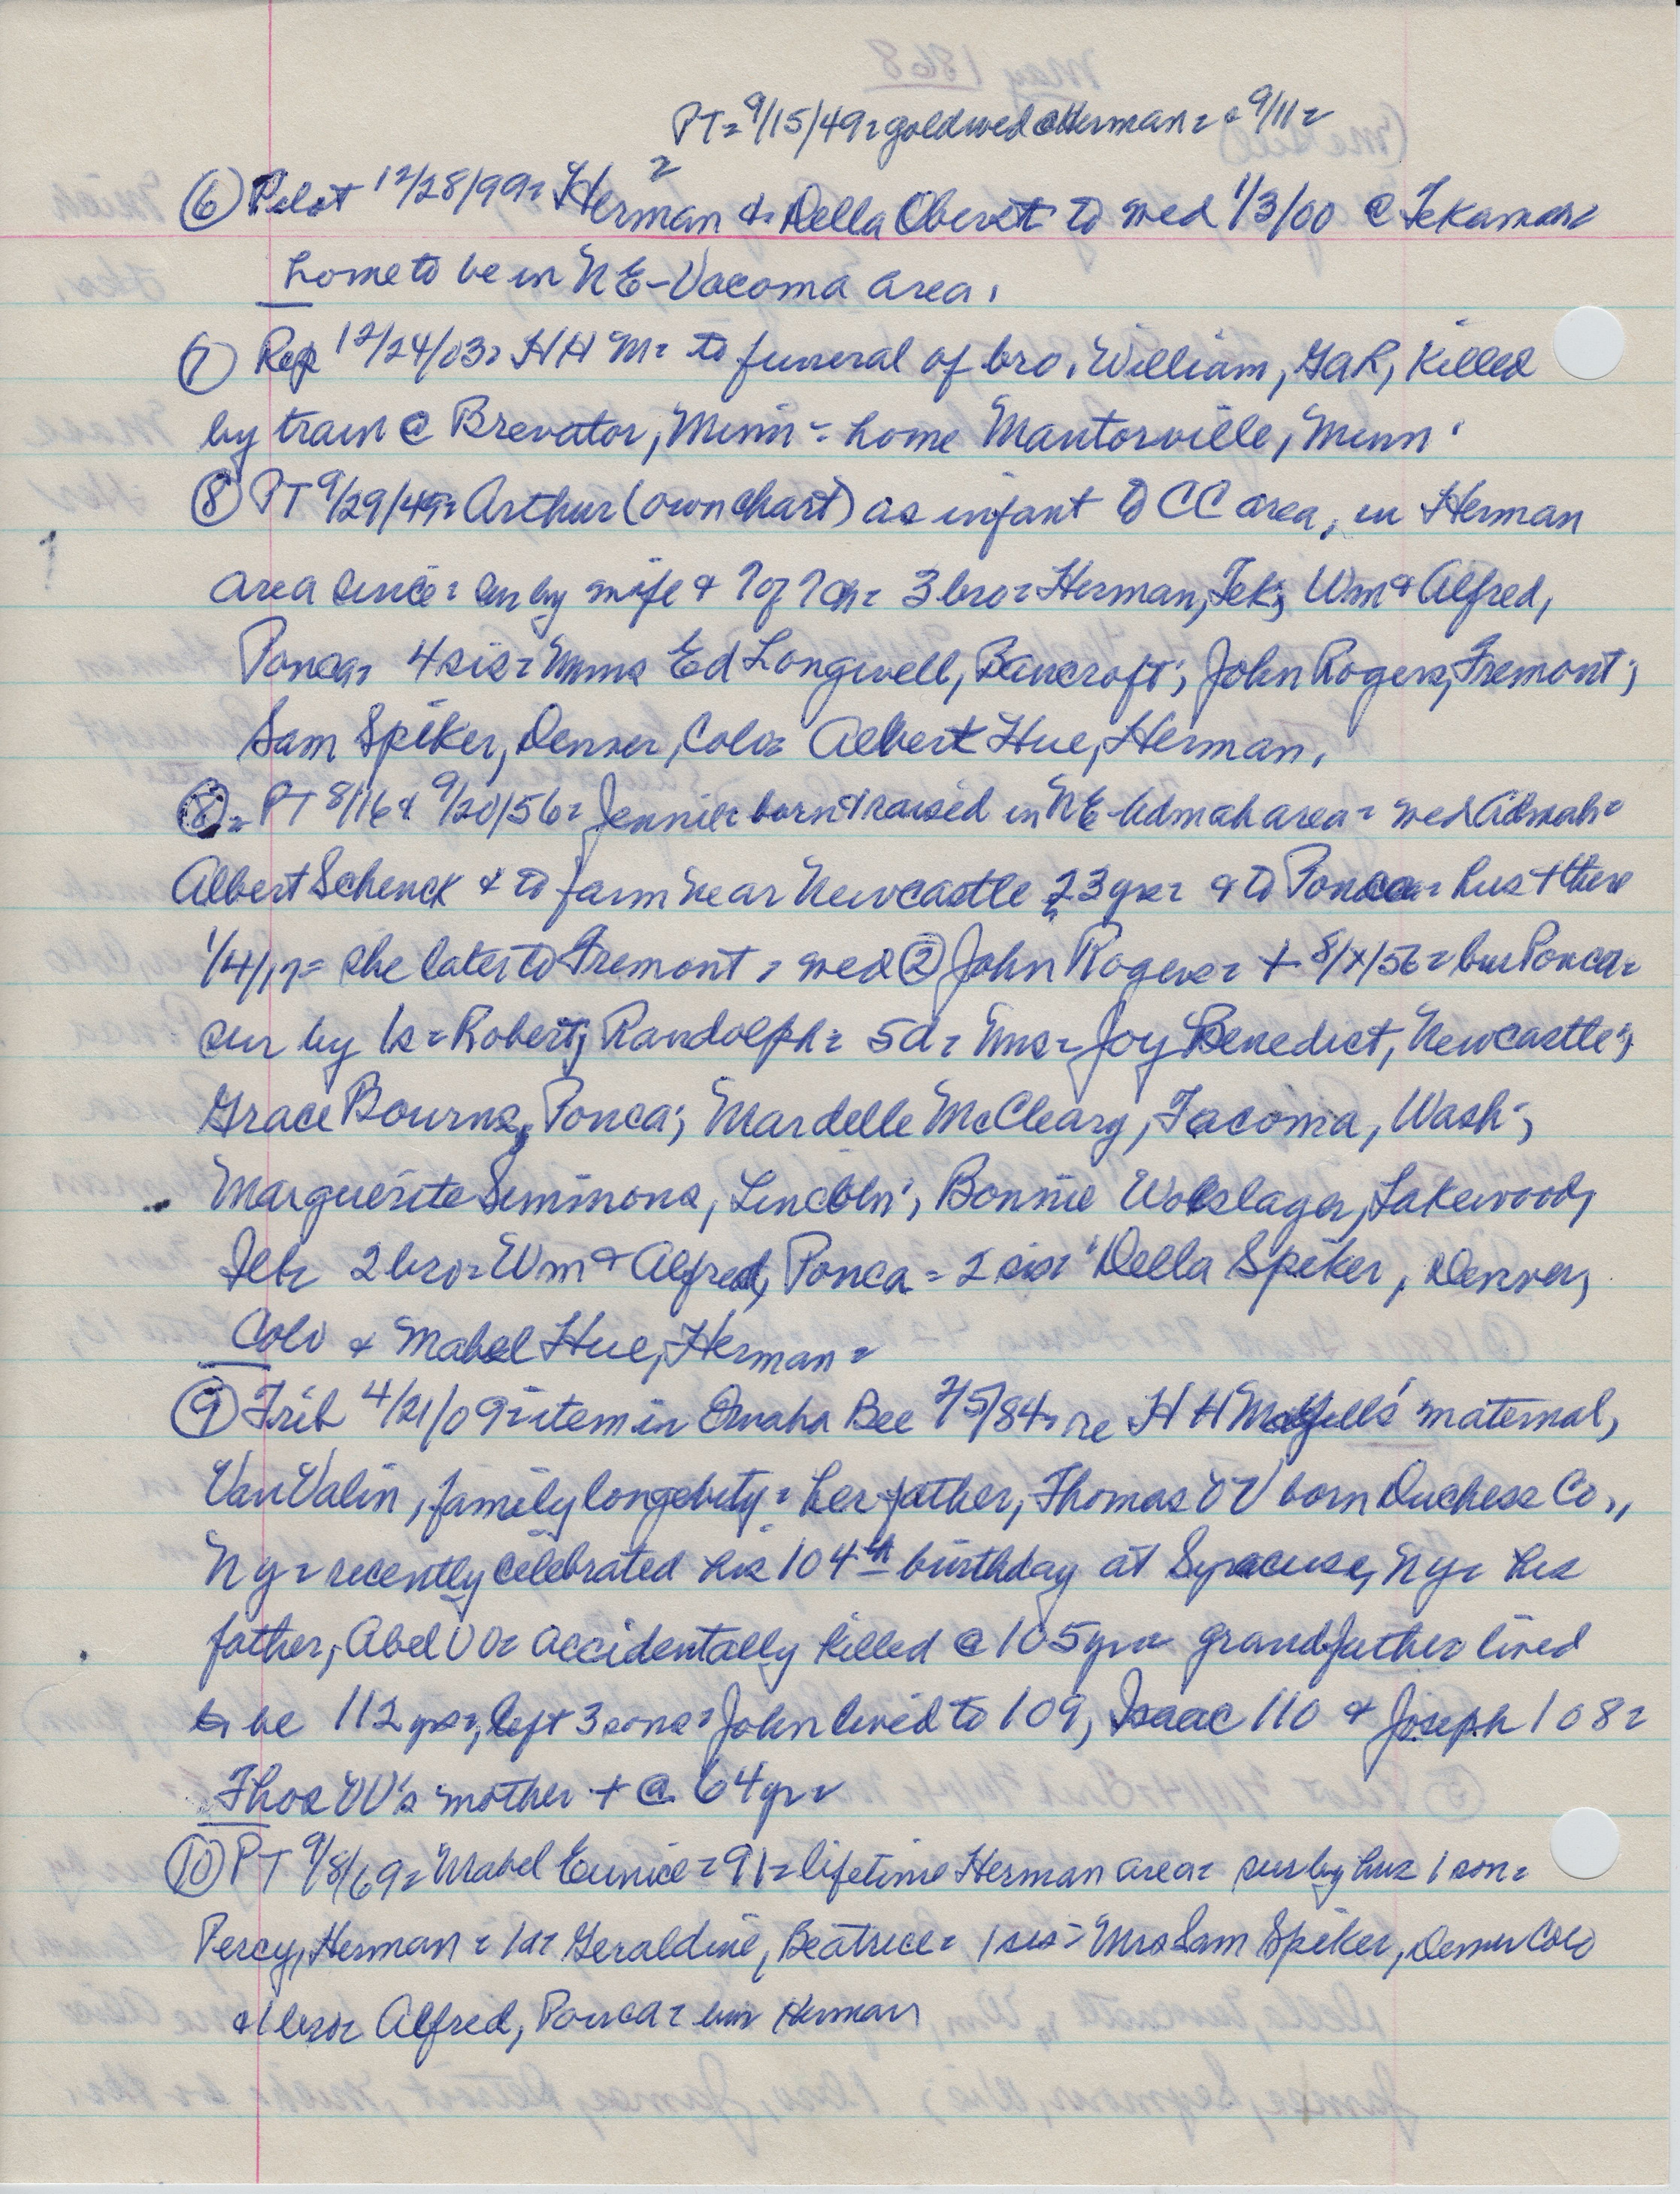 PT= 9/15/49= gold wed @ Herman= 9/11=
⑥ Pilot 12/28/99= Herman & Della Oberst to wed 1/3/00 @ Tekamah=
home to be in NE-Vacoma area.
⑦ Rep 12/24/03= HH M= to funeral of bro. William, GAR, killed
by train @ Brevator, Minn - home Mantorville, Minn.
⑧ PT 9/29/49= Arthur (own chart) as infant to CC area, in Herman
area since= sur by wife & 7 of 7 ch= 3 bro= Herman, Tek; Wm & Alfred,
Ponca= 4 sis= Mmes Ed Longwell, Bancroft; John Rogers, Fremont;
Sam Spiker, Denver, Colo= Albert Hue, Herman.
⑧= PT 8/16 & 9/20/56= Jennie= born & raised in NE-Admah area= wed Admah=
Albert Schenck & to farm near Newcastle 23 yrs= & to Ponca= hus + there
1/4/17= she later to Fremont, wed ② John Rogers= + 8/x/56= bur Ponca=
sur by 1s= Robert, Randolph= 5d= Mms= Joy Benedict, Newcastle;
Grace Bourns, Ponca; Mardelle McCleary, Tacoma, Wash;
Marguerite Simmons, Lincoln; Bonnie Wolslager, Lakewood,
2 bro= Wm & Alfred, Ponca= 2 sis= Della Spiker, Denver,
Colo & Mabel Hue, Herman=
⑨ Trib 4/21/09= item in Omaha Bee 2/5/84= re HH maternal,
Van Valin, family longevity= her father, Thomas VV born Duchess Co.,
NY= recently celebrated his 104th birthday at Syracuse, NY= his
father, Abel VV= accidentally killed @ 105 yrs= grandfather lived
to be 112 yrs=, left 3 sons= John lived to 109, Isaac 110 & Joseph 108=
Thos VV's mother + @ 64 yr=
⑩ PT 9/8/69= Mabel Eunice= 91= lifetime Herman area= sur by hus= 1 son=
Percy, Herman= 1d= Geraldine, Beatrice= 1 sis= Mrs Sam Spiker, Denver Colo
& 1 bro= Alfred, Ponca= bur Herman